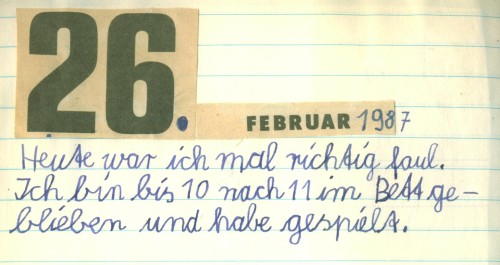 26.
FEBRUAR 1987
Heute war ich mal richtig faul.
Ich bin bis 10 nach 11 im Bett ge-
blieben und habe gespielt.